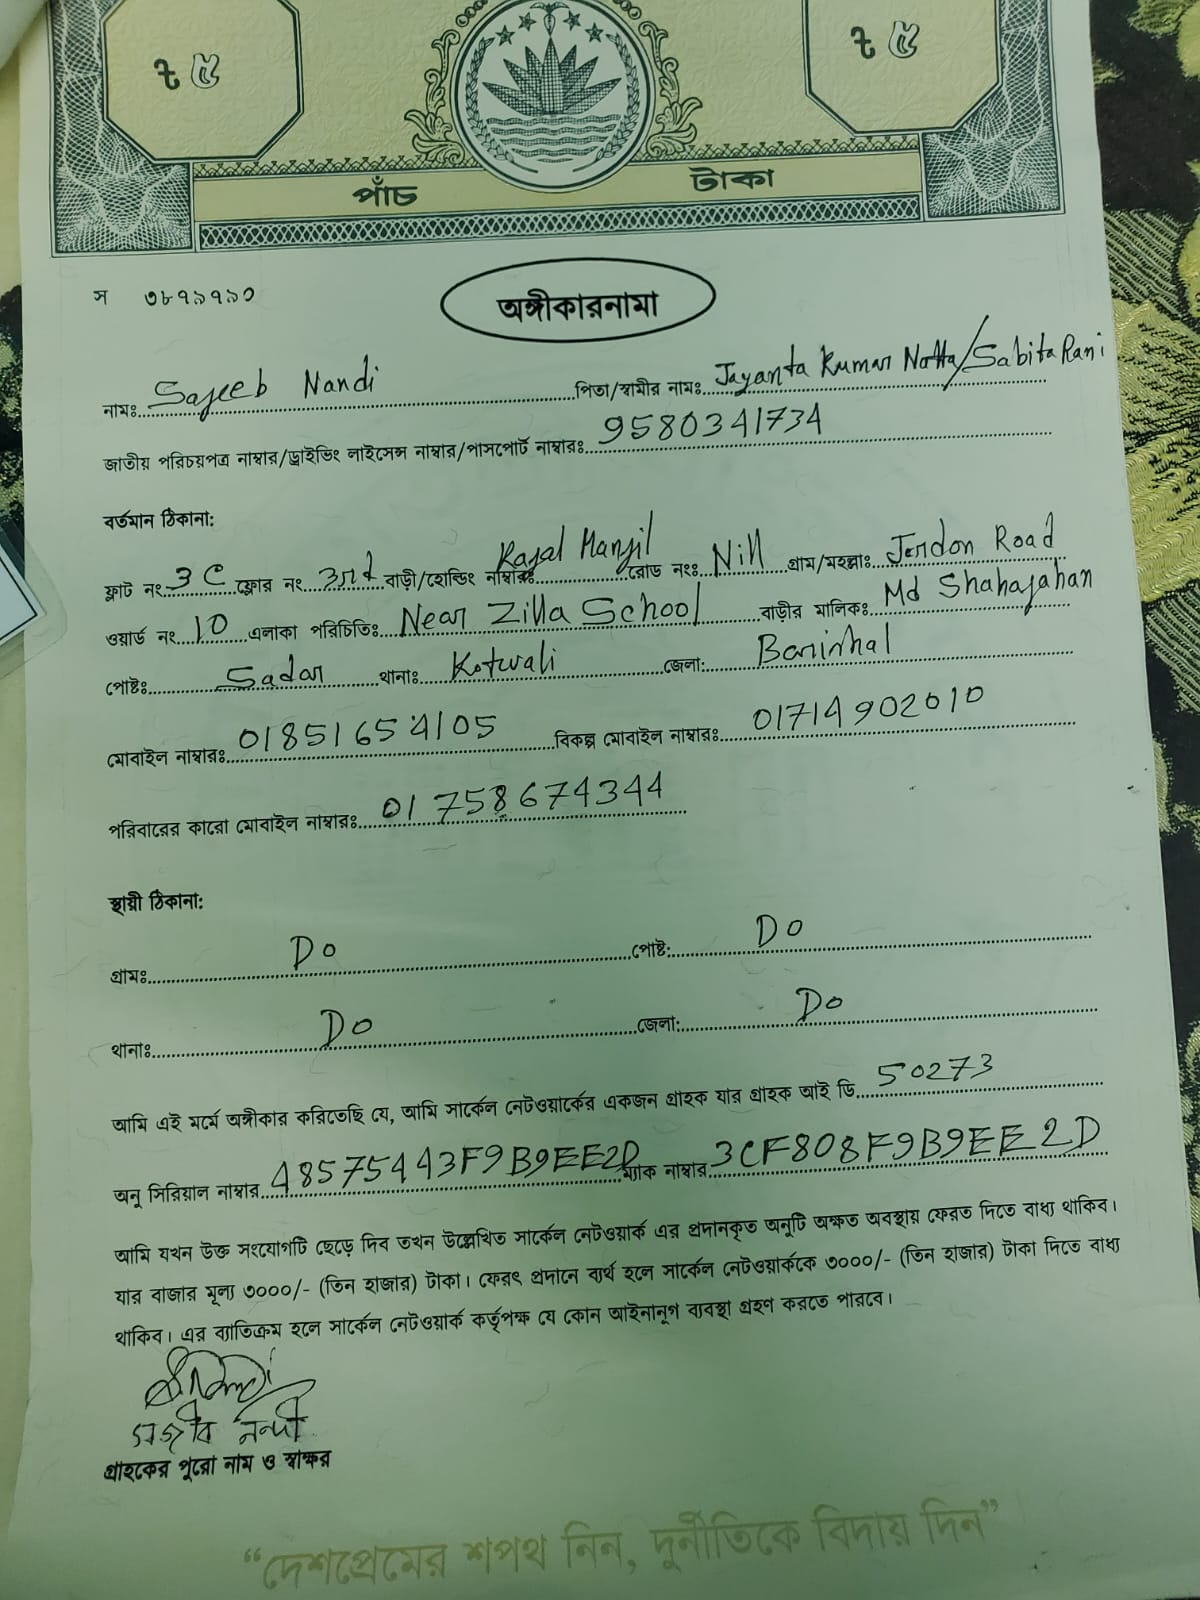 ৳ ৫ ৳ ৫
পাঁচ টাকা
স ৩৮৭৯৭৯০
অঙ্গীকারনামা
নামঃ Sajeeb Nandi পিতা/স্বামীর নামঃ Jayanta Kumar Natta/Sabita Rani
জাতীয় পরিচয়পত্র নাম্বার/ড্রাইভিং লাইসেন্স নাম্বার/পাসপোর্ট নাম্বারঃ 9580341734
বর্তমান ঠিকানা:
ফ্লাট নং 3C ফ্লোর নং 3rd বাড়ী/হোল্ডিং নাম্বারঃ Kajal Manjil রোড নংঃ Nill গ্রাম/মহল্লাঃ Jordon Road
ওয়ার্ড নং 10 এলাকা পরিচিতিঃ Near Zilla School বাড়ীর মালিকঃ Md Shahajahan
পোষ্টঃ Sadar থানাঃ Kotwali জেলা: Barishal
মোবাইল নাম্বারঃ 01851654105 বিকল্প মোবাইল নাম্বারঃ 01714902010
পরিবারের কারো মোবাইল নাম্বারঃ 01758674344
স্থায়ী ঠিকানা:
গ্রামঃ Do পোষ্ট: Do
থানাঃ Do জেলা: Do
আমি এই মর্মে অঙ্গীকার করিতেছি যে, আমি সার্কেল নেটওয়ার্কের একজন গ্রাহক যার গ্রাহক আই ডি 50273
অনু সিরিয়াল নাম্বার 48575443F9B9EE2D ম্যাক নাম্বার 3CF808F9B9EE2D
আমি যখন উক্ত সংযোগটি ছেড়ে দিব তখন উল্লেখিত সার্কেল নেটওয়ার্ক এর প্রদানকৃত অনুটি অক্ষত অবস্থায় ফেরত দিতে বাধ্য থাকিব।
যার বাজার মূল্য ৩০০০/- (তিন হাজার) টাকা। ফেরৎ প্রদানে ব্যর্থ হলে সার্কেল নেটওয়ার্ককে ৩০০০/- (তিন হাজার) টাকা দিতে বাধ্য
থাকিব। এর ব্যাতিক্রম হলে সার্কেল নেটওয়ার্ক কর্তৃপক্ষ যে কোন আইনানুগ ব্যবস্থা গ্রহণ করতে পারবে।
SNandi
সজীব নন্দী
গ্রাহকের পুরো নাম ও স্বাক্ষর
“দেশপ্রেমের শপথ নিন, দুর্নীতিকে বিদায় দিন”